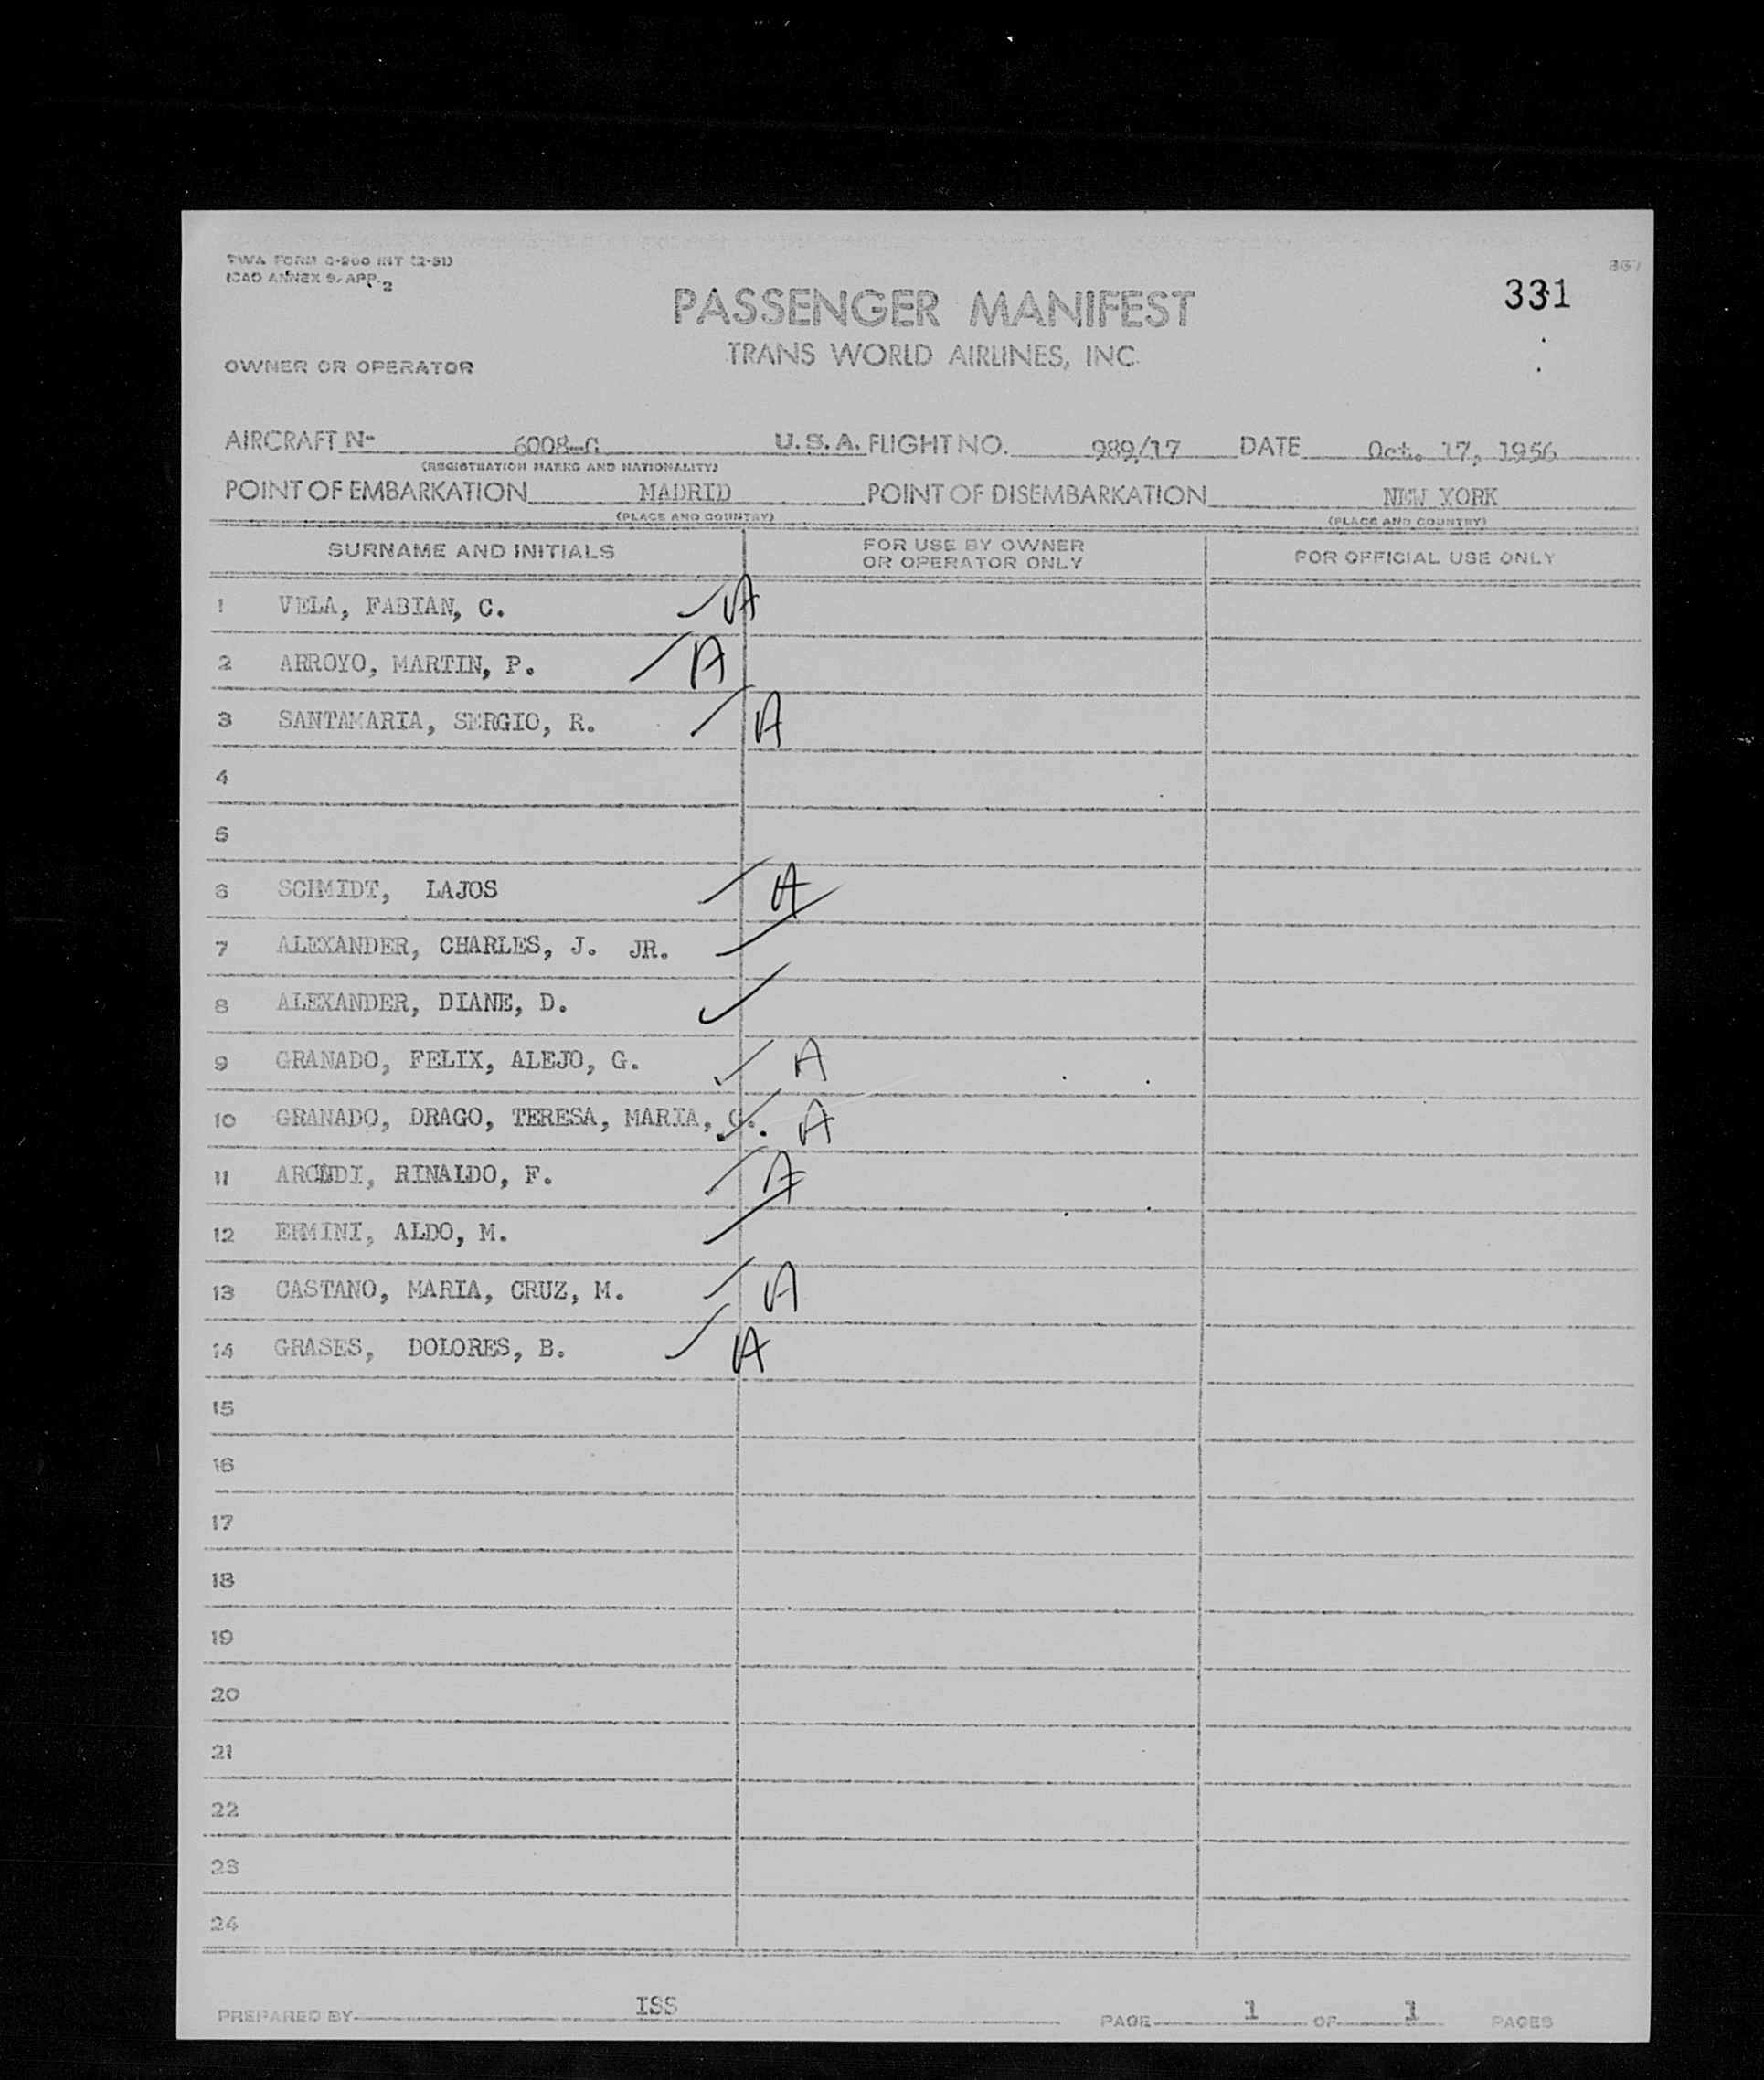 TWA FORM O-200 INT (2-51)
ICAO ANNEX 9, APP. 2
331
PASSENGER MANIFEST
TRANS WORLD AIRLINES, INC.
OWNER OR OPERATOR
AIRCRAFT N- 6008-C U.S.A. FLIGHT NO. 989/17 DATE Oct. 17, 1956
(REGISTRATION MARKS AND NATIONALITY)
POINT OF EMBARKATION MADRID POINT OF DISEMBARKATION NEW YORK
(PLACE AND COUNTRY) (PLACE AND COUNTRY)
SURNAME AND INITIALS FOR USE BY OWNER OR OPERATOR ONLY FOR OFFICIAL USE ONLY
1 VELA, FABIAN, C. A
2 ARROYO, MARTIN, P. A
3 SANTAMARIA, SERGIO, R. A
4
5
6 SCHMIDT, LAJOS A
7 ALEXANDER, CHARLES, J. JR.
8 ALEXANDER, DIANE, D.
9 GRANADO, FELIX, ALEJO, G. A
10 GRANADO, DRAGO, TERESA, MARIA, A
11 RINALDO, F. A
12 ERMINI, ALDO, M.
13 CASTANO, MARIA, CRUZ, M. A
14 GRASES, DOLORES, B. A
15
16
17
18
19
20
21
22
23
24
PREPARED BY ISS PAGE 1 OF 1 PAGES